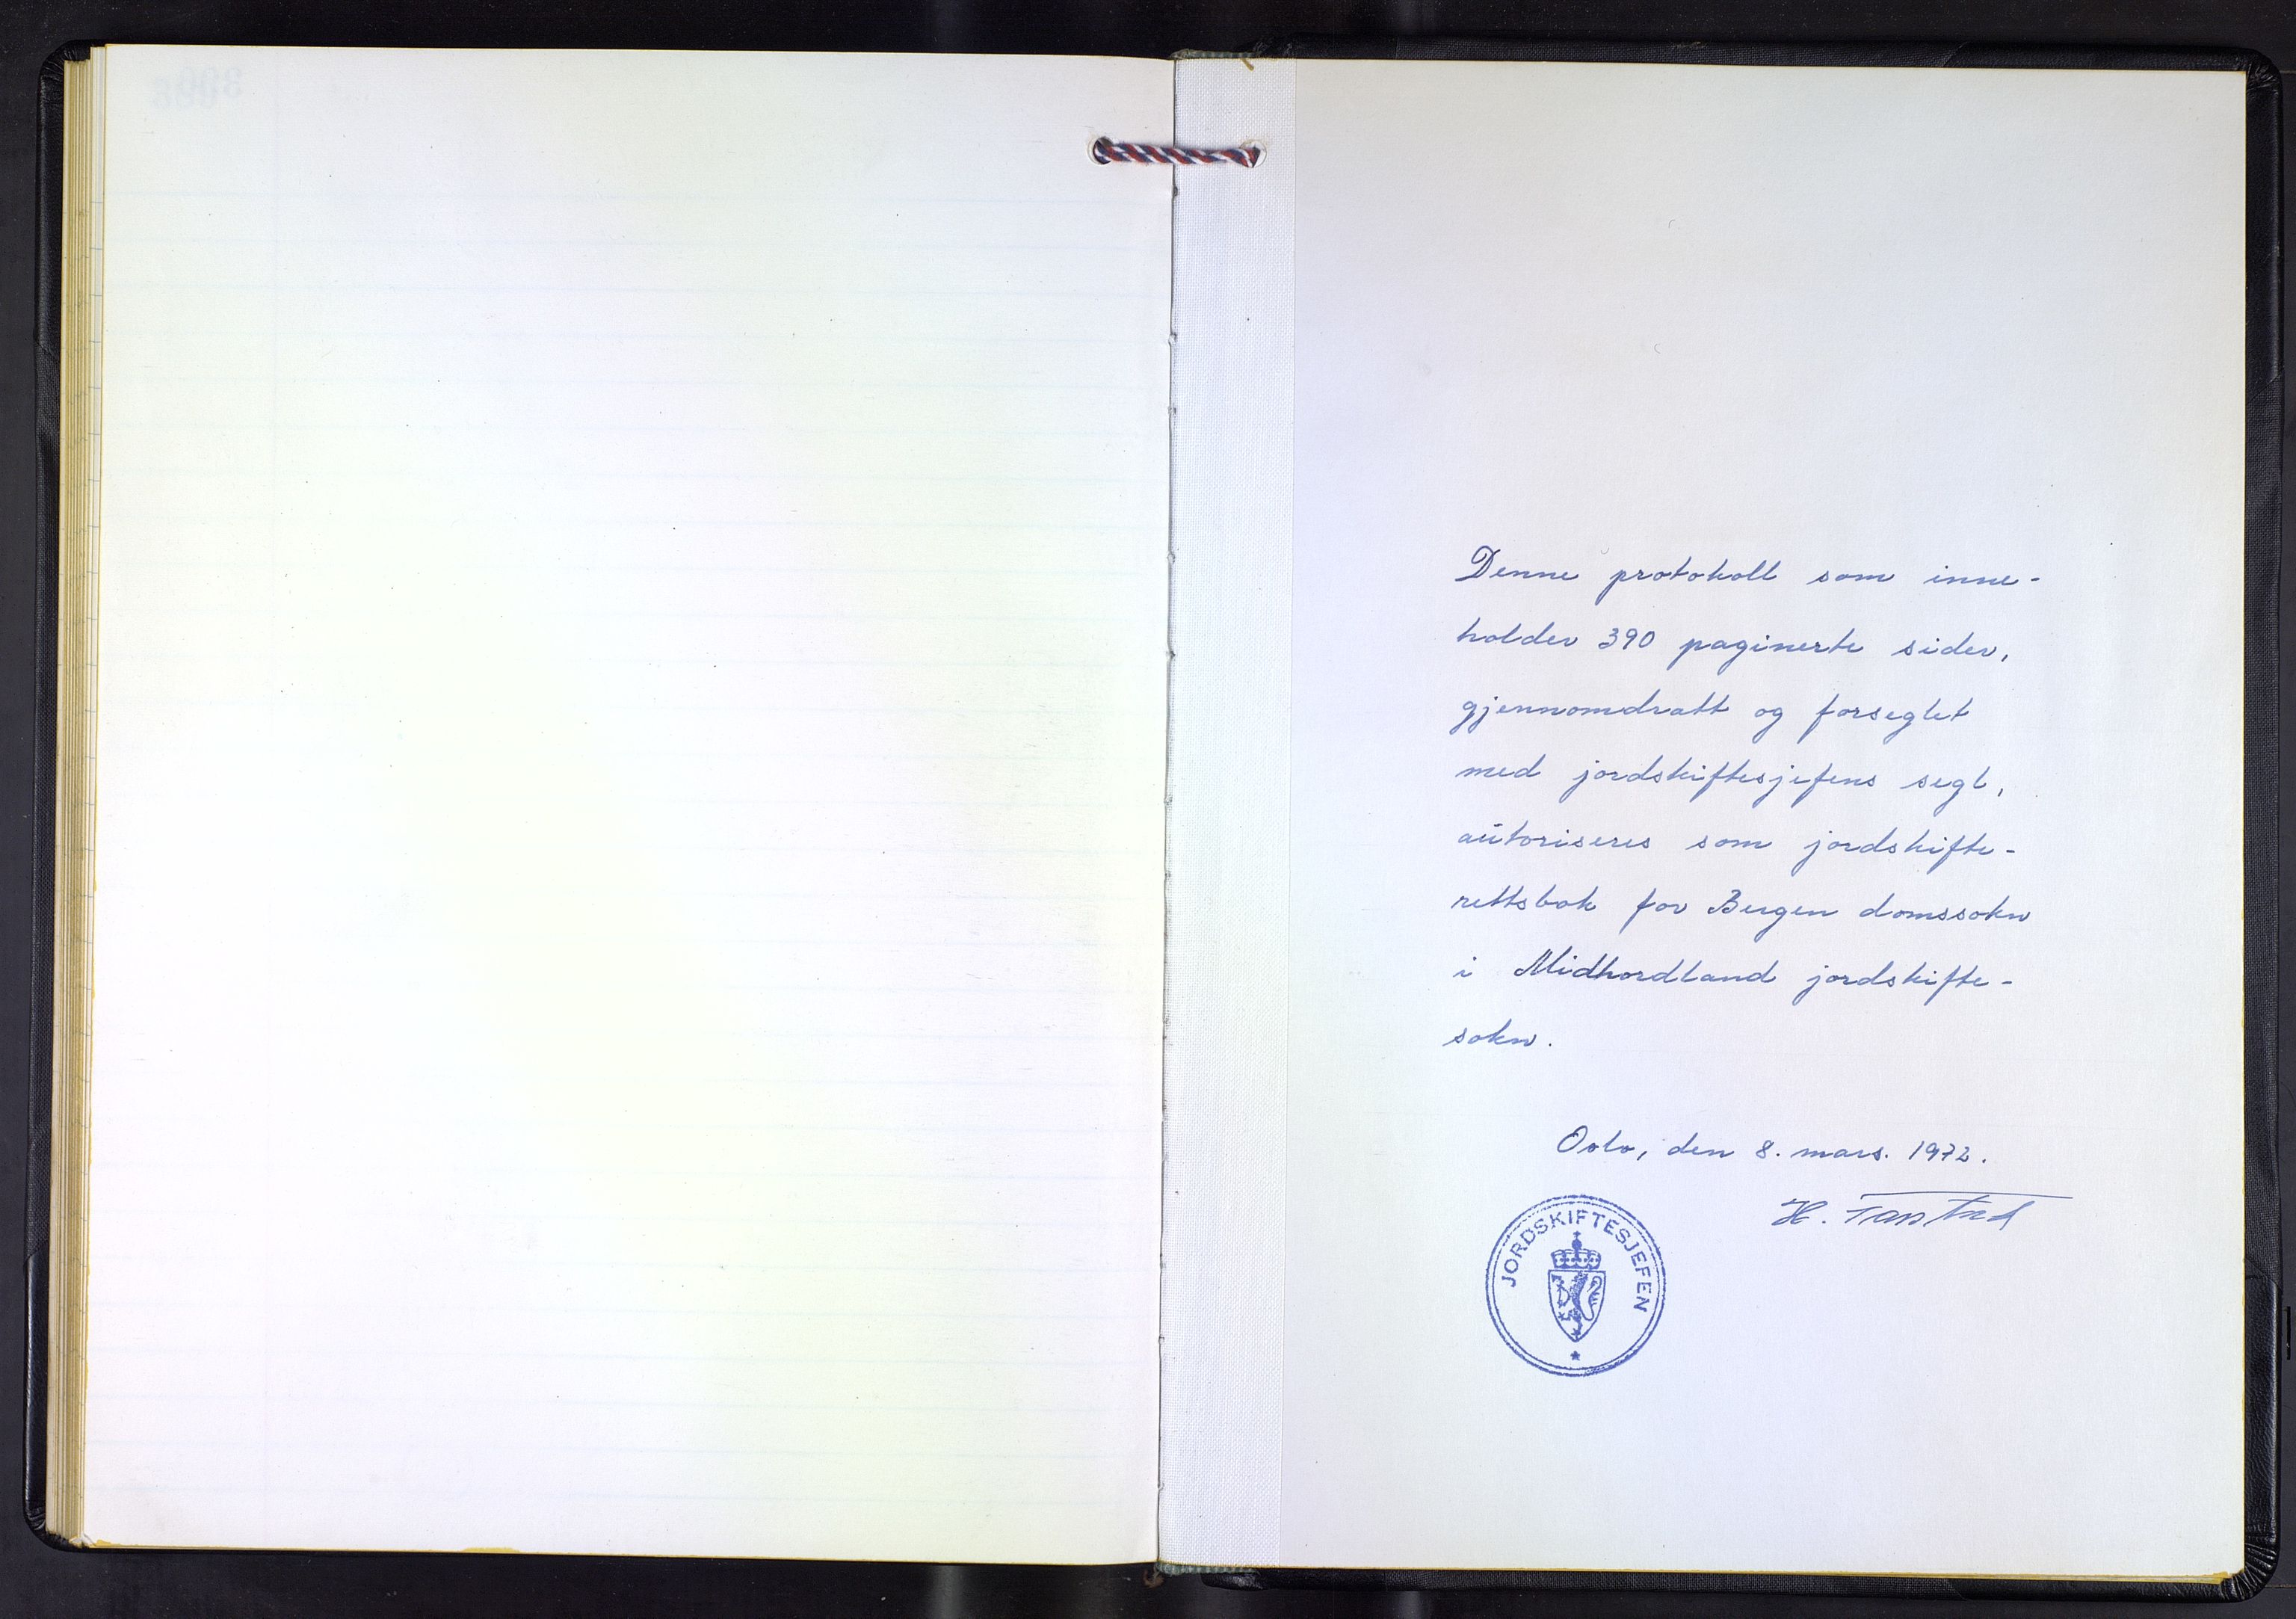 Denne protokoll som inne-
holder 390 paginerte sider,
gjennomdratt og forseglet
med jordskiftesjefens segl,
autoriseres som jordskifte-
rettsbok for Bergen domssokn
i Midhordland jordskifte-
sokn.
Oslo, den 8. mars. 1972.
H.
JORDSKIFTESJEFEN